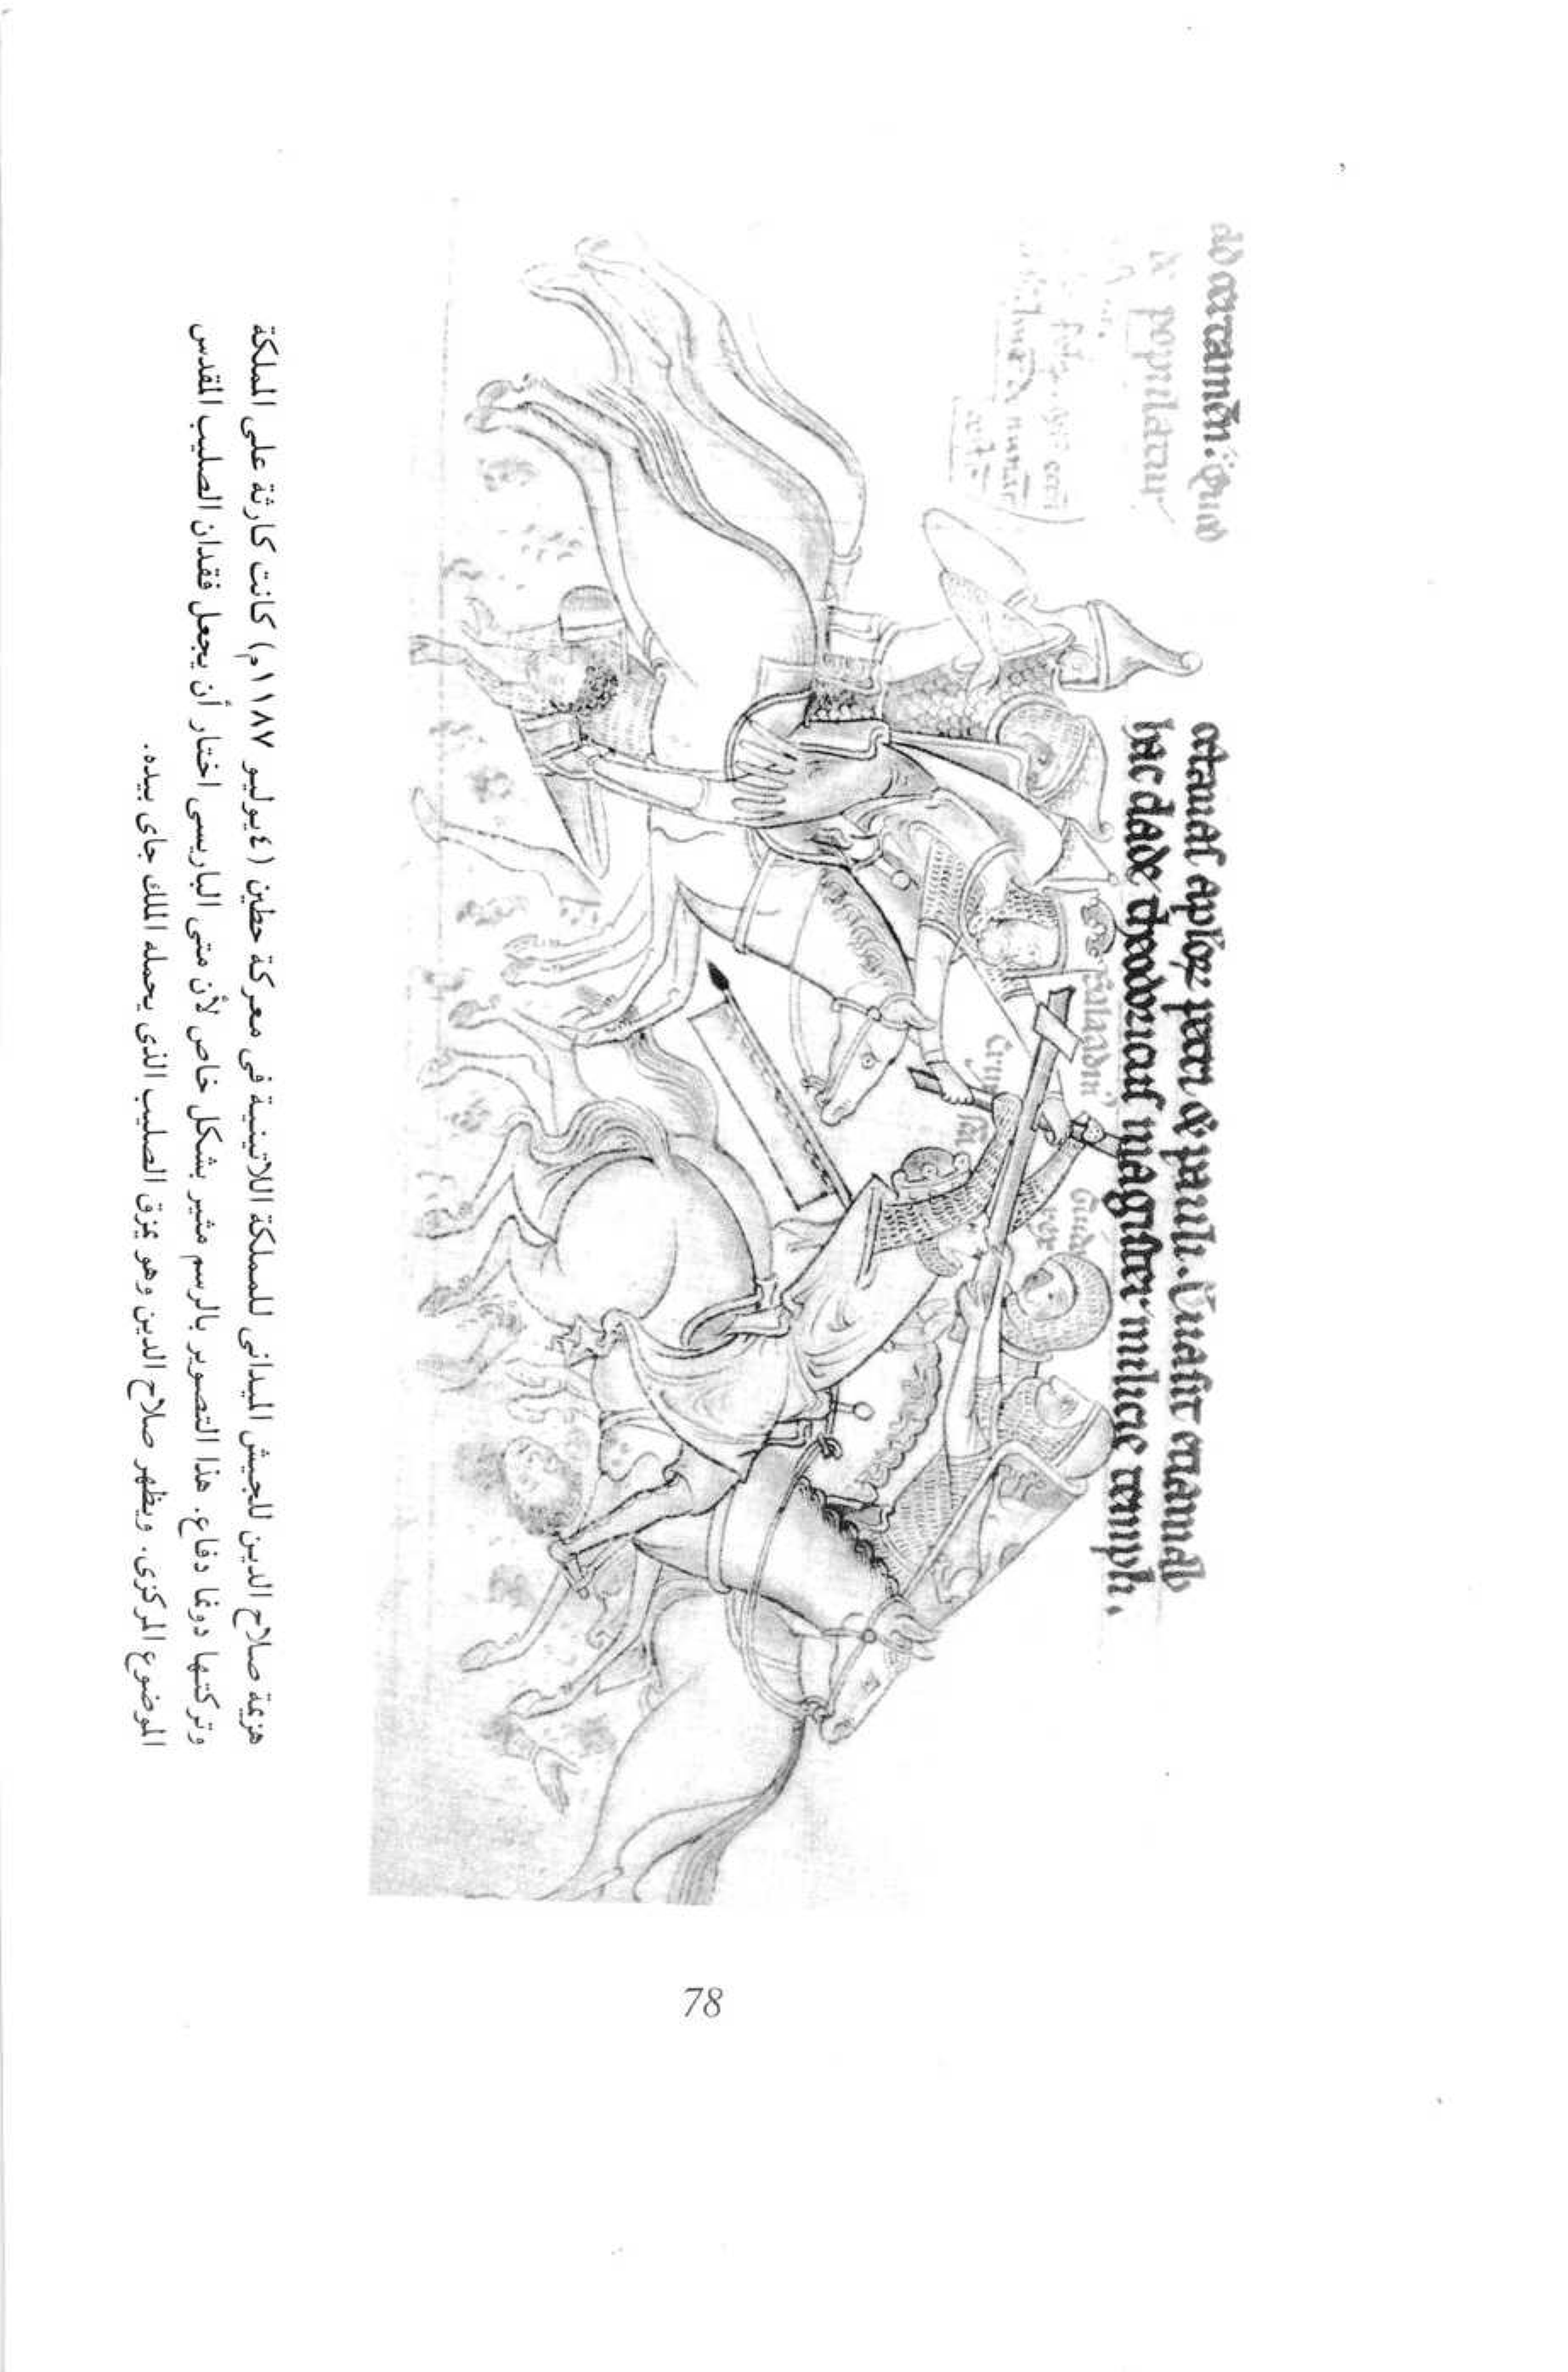 ad certamen. Quod
octauas aplor petri & pauli. Euasit
hac clade theodoricus magister milicie templi.
& populatur
Saladin
Guido
rex
هزيمة صلاح الدين للجيش الميدانى للمملكة اللاتينية فى معركة حطين (٤يوليو ١١٨٧م) كانت كارثة على المملكة
وتركتها دونما دفاع. هذا التصوير بالرسم مثير بشكل خاص لأن متى الباريسى اختار أن يجعل فقدان الصليب المقدس
الموضوع المركزى. ويظهر صلاح الدين وهو يمزق الصليب الذى يحمله الملك جاى بيده.
78